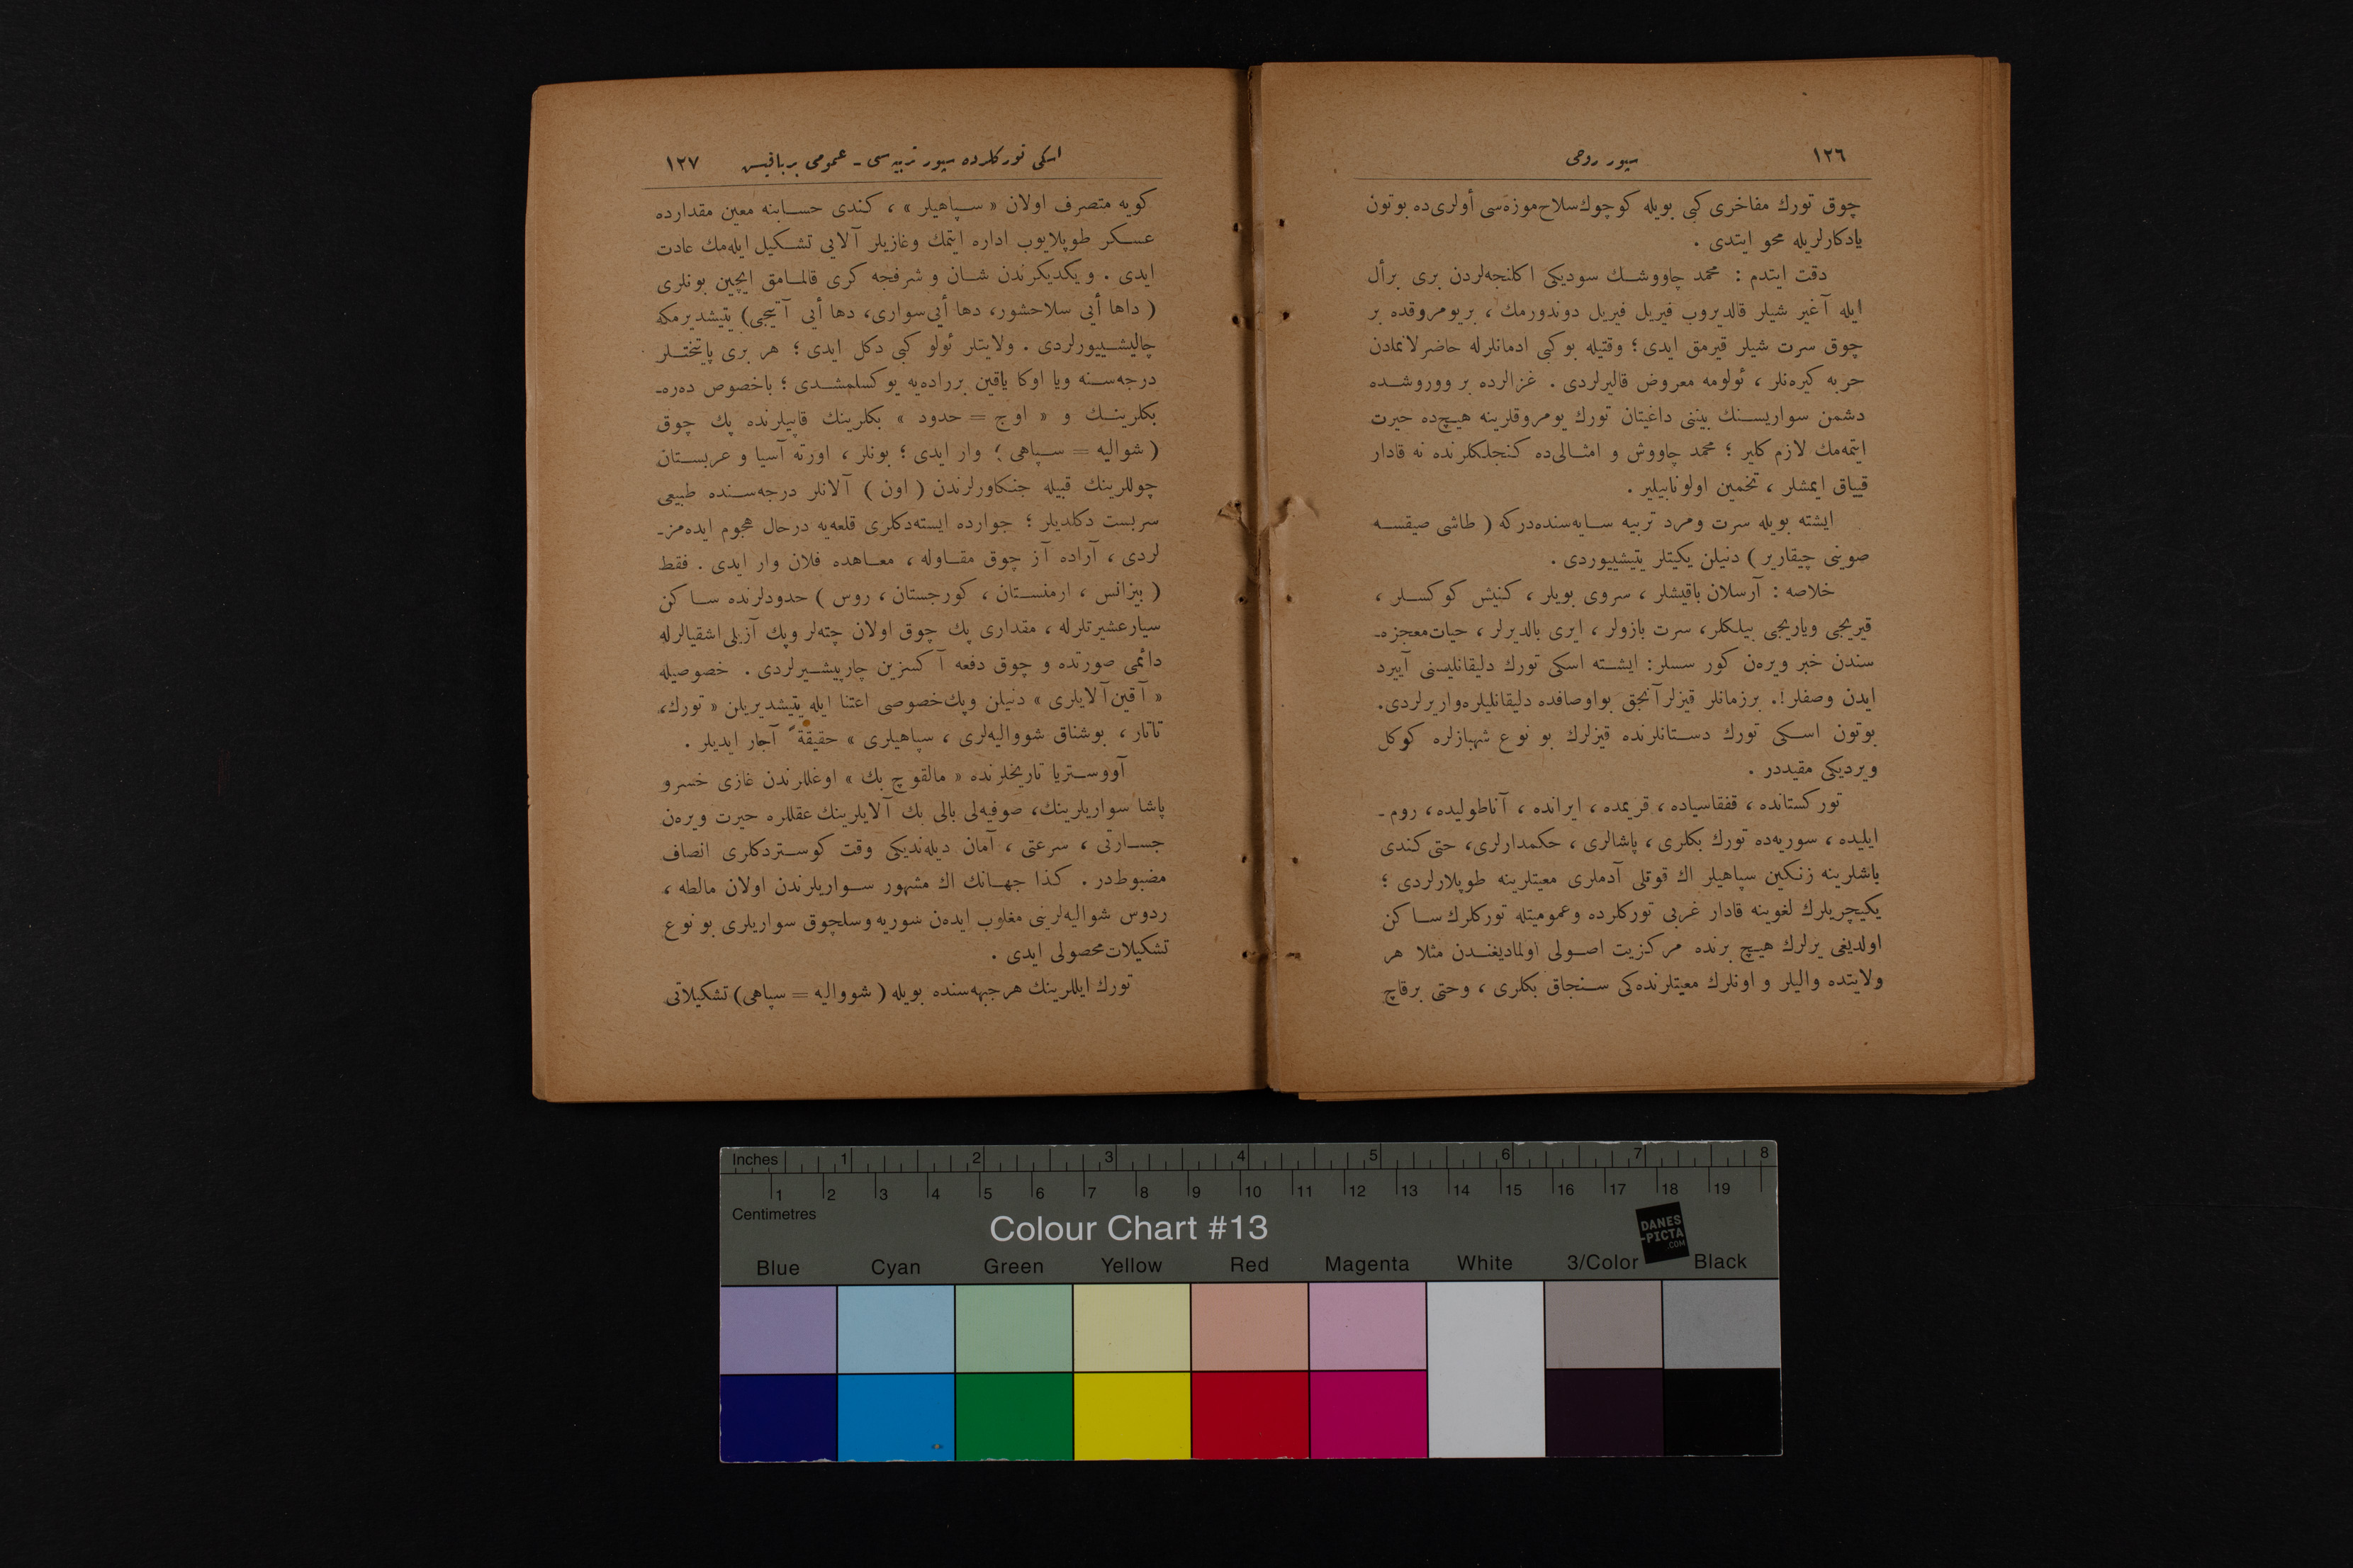 ١٢٦
سپور روحی
چوق تورك مفاخری كبی بویله كوچوك‌سلاح‌موزه‌سی أولری‌ده بوتون
یادكارلریله محو ایتدی .
دقت ایتدم : محمد چاووشـك سودیكی اكلنجه‌لردن بری برأل
ایله آغیر شیلر قالدیروب فیریل فیریل دوندورمك ، بریومروقده بر
چوق سرت شیلر قیرمق ایدی ؛ وقتیله بوكبی ادمانلرله حاضرلانمادن
حربه كیره‌نلر ، ئولومه معروض قالیرلردی . غزالرده بر ووروشـده
دشمن سواریسـنك بیننی داغیتان تورك یومروقلرینه هیـچ‌ده حیرت
ایتمه‌مك لازم كلیر ؛ محمد چاووش و امثـالی‌ده كنجلكلرنده نه قادار
قییاق ایمشلر ، تخمین اولونابیلیر .
ایشته بویله سرت ومرد تربیه سـایه‌سنده‌دركه ( طاشی صیقسـه
صوینی چیقاریر ) دنیلن یكیتلر یتیشییوردی .
خلاصه : آرسلان باقیشلر ، سروی بویلر ، كنیش كوكسـلر ،
قیریجی ویاریجی بیلكلر، سرت بازولر ، ایری بالدیرلر ، حیات‌معجزه‌ـ
سندن خبر ویره‌ن كور سسلر: ایشـته اسكی تورك دلیقانلیسنی آییرد
ایدن وصفلر!. برزمانلر قیزلرآنجق بواوصافده دلیقانلیلره‌واریرلردی.
بوتون اسـكی تورك دسـتانلرنده قیزلرك بو نوع شهبازلره كوكل
ویردیكی مقیددر .
توركستانده ، قفقاسیاده ، قریمده ، ایرانده ، آناطولیده ، روم ـ
ایلیده ، سوریه‌ده تورك بكلری ، پاشالری ، حكمدارلری، حتی كندی
باشلرینه زنـكین سپاهیلر اك قوتلی آدملری معیتلرینه طوپلارلردی ؛
یكیچریلرك لغوینه قادار غربی توركلرده وعمومیتله توركلرك سـاكن
اولدیغی یرلرك هیـچ برنده مركزیت اصـولی اولمادیغنـدن مثلا هر
ولایتده والیلر و اونلرك معیتلرنده‌كی سـنجاق بكلری ، وحتی برقاچ
اسكی توركلرده سپور تربیه‌سی ـ عمومی بر باقیس
١٢٧
كویه متصرف اولان « سـپاهیلر » ، كندی حسـابنه معین مقدارده
عسـكر طوپلایوب اداره ایتمك وغازیلر آلایی تشـكیل ایله‌مك عادت
ایدی . و یكدیكرندن شـان و شرفجه كری قالمـامق ایچین بونلری
( داها أیی سلاحشور، دها أیی‌سواری، دها أیی آتیجی) یتیشدیرمكه
چالیشـییورلردی . ولایتلر ئولو كبی دكل ایدی ؛ هر بری پایتختـلر
درجه‌سـنه ویا اوكا یاقین برراده‌یه یوكسلمشـدی ؛ باخصوص دره‌ـ
بكلرینـك و « اوج = حدود » بكلرینك قاپیلرنده پك چوق
( شوالیه = سـپاهی ؛ وار ایدی ؛ بونلر ، اورته آسیا و عربسـتان
چوللرینك قبیله جنكاورلرندن ( اون ) آلانلر درجه‌سـنده طبیعی
سربست دكلدیلر ؛ جوارده ایسته‌دكلری قلعه‌یه درحال هجوم ایده‌مزـ
لردی ، آراده آز چوق مقـاوله ، معـاهده فلان وار ایدی . فقط
( بیزانس ، ارمنسـتان ، كورجستان ، روس ) حدودلرنده سـاكن
سیارعشیرتلرله ، مقداری پك چوق اولان چته‌لر وپك آزیلی‌اشقیالرله
دائمی صورتده و چوق دفعه آكسزین چارپیشـیرلردی . خصوصیله
« آقین‌آلایلری » دنیلن وپك‌خصوصی اعتنا ایله یتیشدیریلن « تورك،
تاتار ، بوشناق شووالیه‌لری ، سپاهیلری » حقیقةً آجار ایدیلر .
آووسـتریا تاریخلرنده « مالقوچ بك » اوغللرندن غازی خسرو
پاشا سواریلرینك، صوفیه‌لی بالی بك آلایلرینك عقللره حیرت ویره‌ن
جسـارتی ، سرعتی ، آمان دیله‌ندیكی وقت كوسـتردكلری انصاف
مضبوطدر . كذا جهـانك اك مشهور سـواریلرندن اولان مالطه ،
ردوس شوالیه‌لرینی مغلوب ایده‌ن سوریه وسلچوق سواریلری بو نوع
تشكیلات‌محصولی ایدی .
تورك ایللرینك هرجبهه‌سنده بویله ( شووالیه = سپاهی) تشكیلاتی
Inches 1 2 3 4 5 6 7 8
1 2 3 4 5 6 7 8 9 10 11 12 13 14 15 16 17 18 19
Centimetres
Colour Chart #13
DANES
-PICTA
.COM
Blue Cyan Green Yellow Red Magenta White 3/Color Black